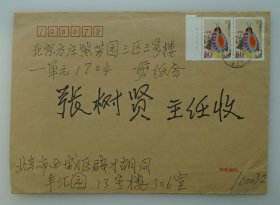 100078
北京方庄芳芳园三区三号楼
一单元1704 剪纸会
张树贤 主任收
北京市西城区辟才胡同
丰汇园13号楼306室
100032
80
80